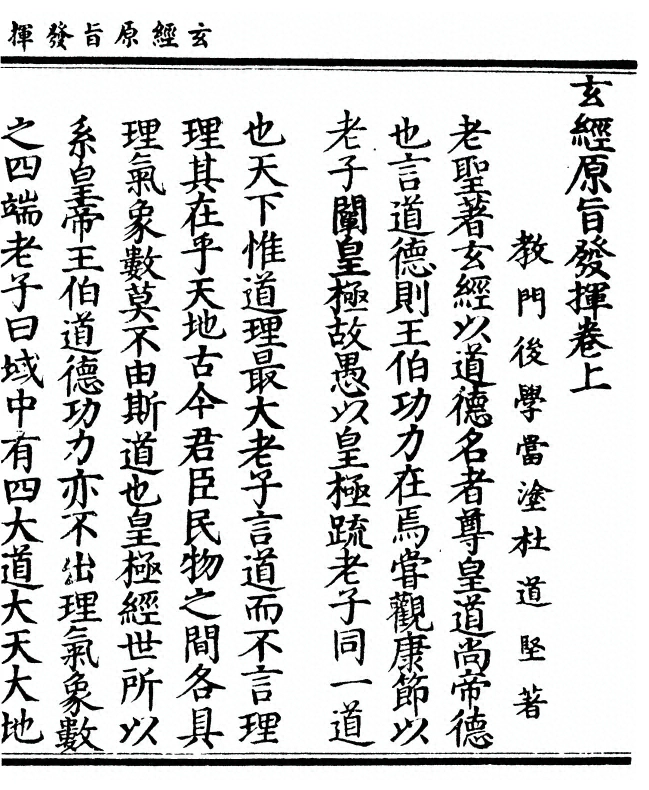 玄經原旨發揮
玄經原旨發揮卷上
教門後學當塗杜道堅著
老聖著玄經以道德名者尊皇道尚帝德
也言道德則王伯功力在焉嘗觀康節以
老子闡皇極故愚以皇極䟽老子同一道
也天下惟道理最大老子言道而不言理
理其在乎天地古今君臣民物之間各具
理氣象數莫不由斯道也皇極經世所以
系皇帝王伯道德功力亦不出理氣象數
之四端老子曰域中有四大道大天大地